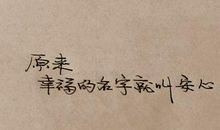 原来
幸福的名字就叫安心